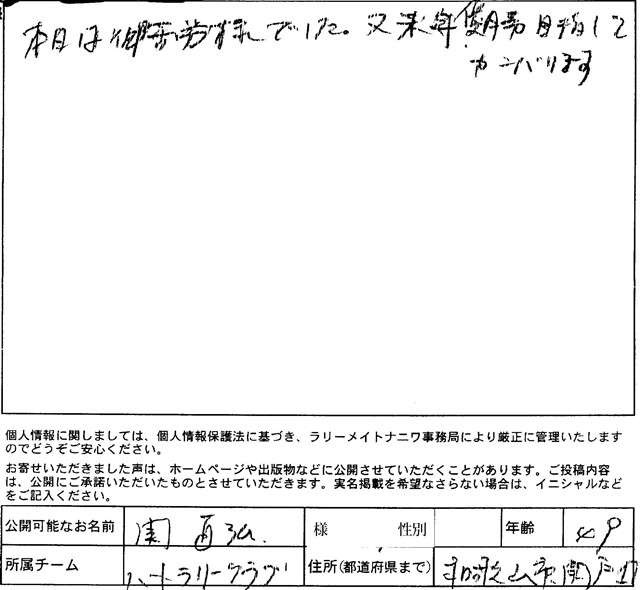 本日は御苦労様でした。又来年優勝目指して
ガンバります
個人情報に関しましては、個人情報保護法に基づき、ラリーメイトナニワ事務局により厳正に管理いたします
のでどうぞご安心ください。
お寄せいただきました声は、ホームページや出版物などに公開させていただくことがあります。ご投稿内容
は、公開にご承諾いただいたものとさせていただきます。実名掲載を希望なさらない場合は、イニシャルなど
をご記入ください。
公開可能なお名前 関 直弘 様 性別 年齢 49
所属チーム ハートラリークラブ 住所(都道府県まで) 和歌山市関戸